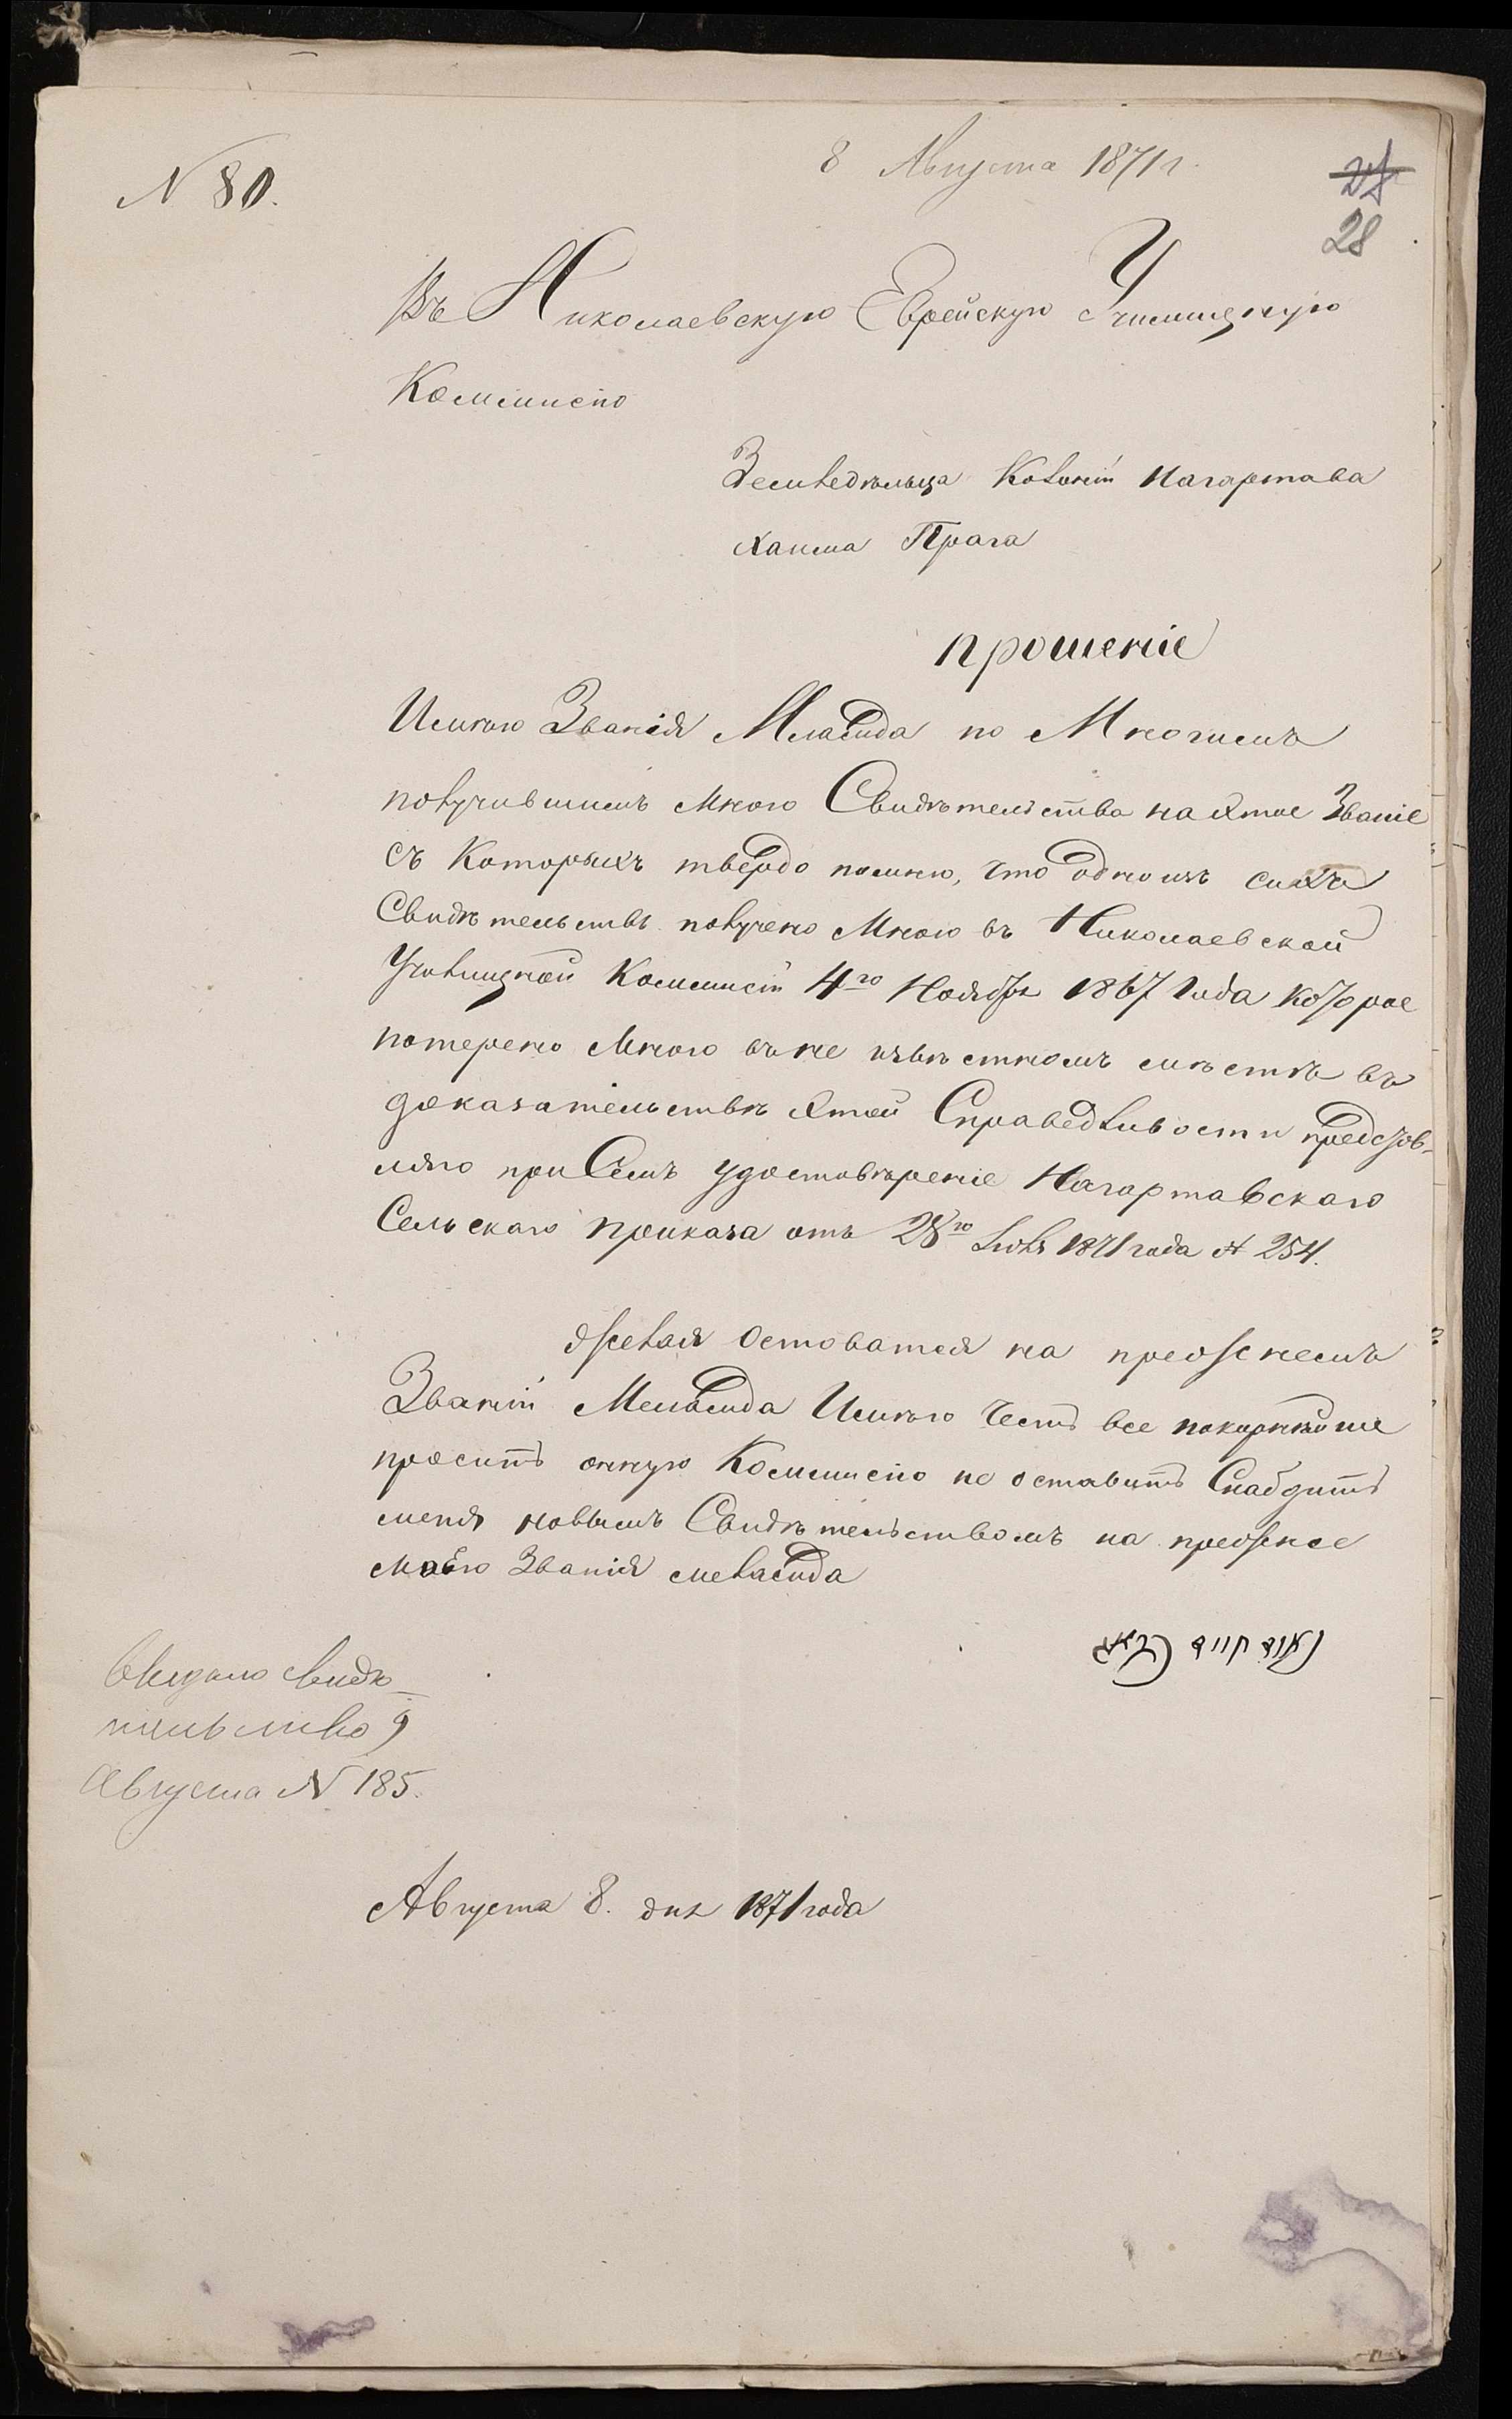 8 Августа 1871 г.
N 80.
28
Въ Николаевскую Еврейскую Училищную
Коммисію
Земледѣльца Колоніи Нагартава
Хаима Прага
прошеніе
Имѣю Званія Меламда по Многимъ
получившимъ Мною Свидѣтельства на Этое Званіе
съ Которыхъ твердо помню, что одно изъ сихъ
Свидѣтельствъ получено Мною въ Николаевской
Училищной Коммисіи 4го Ноября 1867 Года Которое
потерено Мною въ не извѣстномъ мѣстѣ въ
доказательствѣ Этой Справедливости предстов-
ляю при Семъ удостовѣреніе Нагартавскаго
Сельскаго приказа отъ 28го Іюля 1871 года N 254.
Желая Остоватся на прежнемъ
Званіи Меламда Имѣю Честь все покорнѣйше
просить онную Коммисію не оставить Снабдить
меня новымъ Свидѣтельствомъ на прежнее
Мою Званія меламда
Выдано свидѣ-
тельство 9
Августа N 185.
Августа 8. дня 1871 года